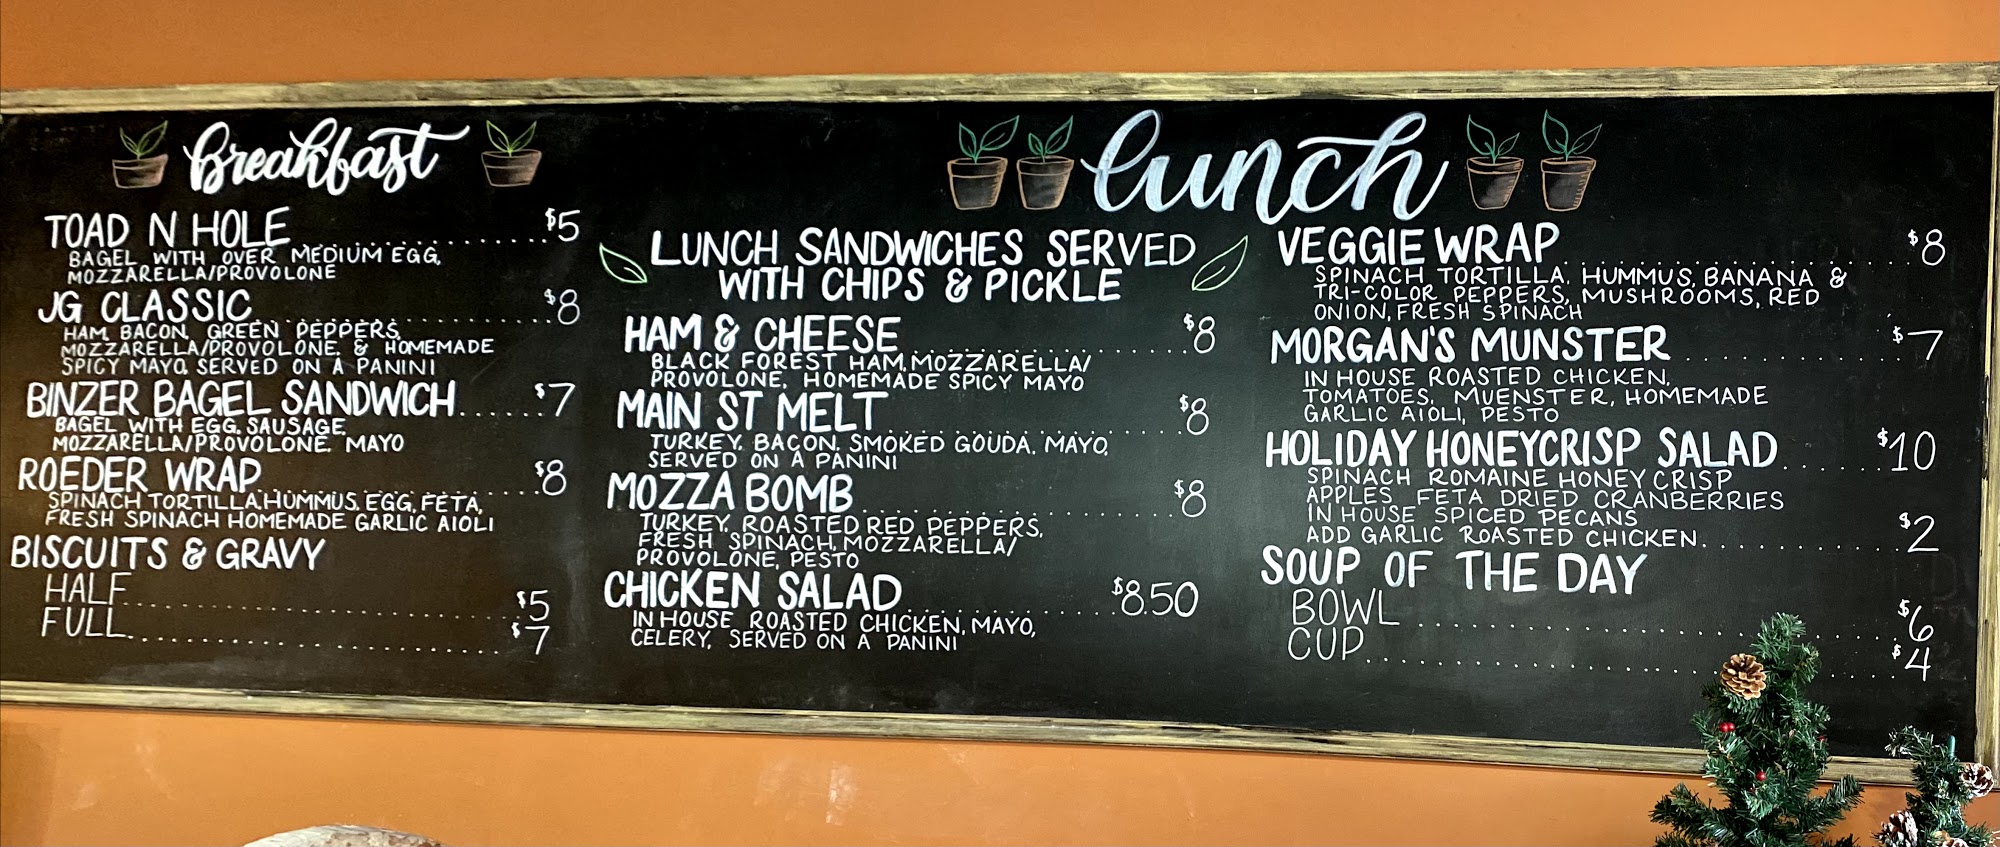 breakfast
TOAD N HOLE $5
BAGEL WITH OVER MEDIUM EGG,
MOZZARELLA/PROVOLONE
JG CLASSIC $8
HAM, BACON, GREEN PEPPERS,
MOZZARELLA/PROVOLONE & HOMEMADE
SPICY MAYO. SERVED ON A PANINI
BINZER BAGEL SANDWICH $7
BAGEL WITH EGG, SAUSAGE,
MOZZARELLA/PROVOLONE, MAYO
ROEDER WRAP $8
SPINACH TORTILLA, HUMMUS, EGG, FETA,
FRESH SPINACH HOMEMADE GARLIC AIOLI
BISCUITS & GRAVY
HALF $5
FULL $7
lunch
LUNCH SANDWICHES SERVED
WITH CHIPS & PICKLE
HAM & CHEESE $8
BLACK FOREST HAM, MOZZARELLA/
PROVOLONE, HOMEMADE SPICY MAYO
MAIN ST MELT $8
TURKEY, BACON, SMOKED GOUDA, MAYO,
SERVED ON A PANINI
MOZZA BOMB $8
TURKEY, ROASTED RED PEPPERS,
FRESH SPINACH, MOZZARELLA/
PROVOLONE, PESTO
CHICKEN SALAD $8.50
IN HOUSE ROASTED CHICKEN, MAYO,
CELERY, SERVED ON A PANINI
VEGGIE WRAP $8
SPINACH TORTILLA, HUMMUS, BANANA &
TRI-COLOR PEPPERS, MUSHROOMS, RED
ONION, FRESH SPINACH
MORGAN'S MUNSTER $7
IN HOUSE ROASTED CHICKEN,
TOMATOES, MUENSTER, HOMEMADE
GARLIC AIOLI, PESTO
HOLIDAY HONEYCRISP SALAD $10
SPINACH ROMAINE HONEY CRISP
APPLES FETA DRIED CRANBERRIES
IN HOUSE SPICED PECANS
ADD GARLIC ROASTED CHICKEN $2
SOUP OF THE DAY
BOWL $6
CUP $4